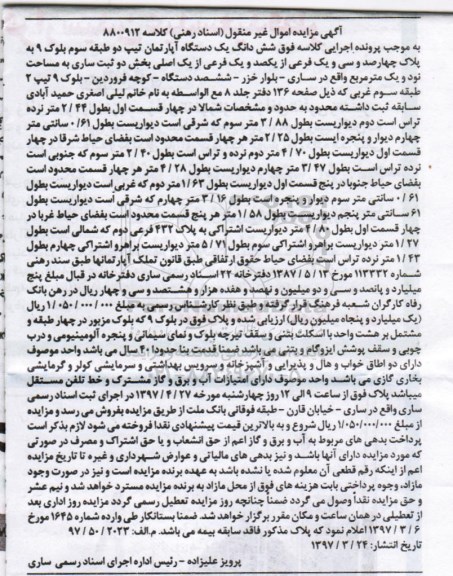 آگهی مزایده اموال غیر منقول (اسناد رهنی) کلاسه ۸۸۰۰۹۱۳
به موجب پرونده اجرایی کلاسه فوق شش دانگ یک دستگاه آپارتمان تیپ دو طبقه سوم بلوک ۹ به
پلاک چهارصد و سی و یک فرعی از یکصد و یک فرعی از یک اصلی بخش دو ثبت ساری به مساحت
نود و یک مترمربع واقع در ساری – بلوار خزر – ششصد دستگاه – کوچه فروردین – بلوک ۹ تیپ ۲
طبقه سوم غربی که ذیل صفحه ۱۳۶ دفتر جلد ۸ مع الواسطه به نام خانم لیلی اصغری حمید آبادی
سابقه ثبت داشته محدود به حدود و مشخصات شمالا در چهار قسمت اول بطول ۲/۴۴ متر نرده
تراس است دوم دیواریست بطول ۳/۸۸ متر سوم که شرقی است دیواریست بطول ۰/۶۱ سانتی متر
چهارم دیوار و پنجره ایست بطول ۲/۲۵ متر هر چهار قسمت محدود است بفضای حیاط شرقا در چهار
قسمت اول دیواریست بطول ۴/۷۰ متر دوم نرده و تراس است بطول ۲/۴۰ متر سوم که جنوبی است
نرده تراس است بطول ۳/۴۷ متر چهارم دیواریست بطول ۴/۲۸ متر هر چهار قسمت محدود است
بفضای حیاط جنوبا در پنج قسمت اول دیواریست بطول ۱/۶۳ متر دوم که غربی است دیواریست بطول
۰/۶۱ سانتی متر سوم دیوار و پنجره است بطول ۳/۱۶ متر چهارم که شرقی است دیواریست بطول
۶۱ سانتی متر پنجم دیواریست بطول ۱/۵۸ متر هر پنج قسمت محدود است بفضای حیاط غربا در
چهار قسمت اول بطول ۴/۲۰ متر دیواریست اشتراکی به پلاک ۴۳۲ فرعی دوم که شمالی است بطول
۱/۲۷ متر دیواریست براهرو اشتراکی سوم بطول ۵/۷۱ متر دیواریست براهرو اشتراکی چهارم بطول
۱/۴۳ متر نرده تراس است بفضای حیاط حقوق ارتفاقی طبق قانون تملک آپارتمانها طبق سند رهنی
شماره ۱۱۳۳۳۲ مورخ ۱۳/۵/۱۳۸۷ دفترخانه ۲۲ اسناد رسمی ساری دفترخانه در قبال مبلغ پنج
میلیارد و پانصد و سی و دو میلیون و نهصد و هفده هزار و هشتصد و سی و چهار ریال در رهن بانک
رفاه کارگران شعبه فرهنگ قرار گرفته و طبق نظر کارشناس رسمی به مبلغ ۱/۰۵۰/۰۰۰/۰۰۰ ریال
(یک میلیارد و پنجاه میلیون ریال) ارزیابی شده و پلاک فوق در بلوک ۹ که بلوک مزبور در چهار طبقه و
مشتمل بر هشت واحد با اسکلت بتنی و سقف تیرچه بلوک و نمای سیمانی و پنجره آلومینیومی و درب
چوبی و سقف پوشش ایزوگام و پتنی می باشد ضمنا قدمت بنا حدودا ۲۰ سال می باشد واحد موصوف
دارای دو اطاق خواب و هال و پذیرایی و آشپزخانه و سرویس بهداشتی و سرمایشی کولر و گرمایشی
بخاری گازی می باشد واحد موصوف دارای امتیازات آب و برق و گاز مشترک و خط تلفن مستقل
میباشد پلاک فوق از ساعت ۹ الی ۱۲ روز چهارشنبه مورخه ۲۷/۴/۱۳۹۷ در اجرای ثبت اسناد رسمی
ساری واقع در ساری – خیابان قارن – طبقه فوقانی بانک ملت از طریق مزایده بفروش می رسد و مزایده
از مبلغ ۱/۰۵۰/۰۰۰/۰۰۰ ریال شروع و به بالاترین قیمت پیشنهادی نقدا فروخته می شود لازم بذکر است
پرداخت بدهی های مربوط به آب و برق و گاز اعم از حق انشعاب و یا حق اشتراک و مصرف در صورتی
که مورد مزایده دارای آنها باشد و نیز بدهی های مالیاتی و عوارض شهرداری و غیره تا تاریخ مزایده
اعم از اینکه رقم قطعی آن معلوم شده یا نشده باشد به عهده برنده مزایده است و نیز در صورت وجود
مازاد، وجوه پرداختی بابت هزینه های فوق از محل مازاد به برنده مزایده مسترد خواهد شد و نیم عشر
و حق مزایده نقدا وصول می گردد ضمناً چنانچه روز مزایده تعطیل رسمی گردد مزایده روز اداری بعد
از تعطیلی در همان ساعت و مکان مقرر برگزار خواهد شد. ضمنا بستانکار طی وارده شماره ۱۶۴۵ مورخ
۶/۳/۱۳۹۷ اعلام نمود که پلاک مذکور فاقد سابقه بیمه می باشد. م.الف: ۲۰۲۳/۵۰/۹۷
تاریخ انتشار: ۲۴/۳/۱۳۹۷
پرویز علیزاده – رئیس اداره اجرای اسناد رسمی ساری